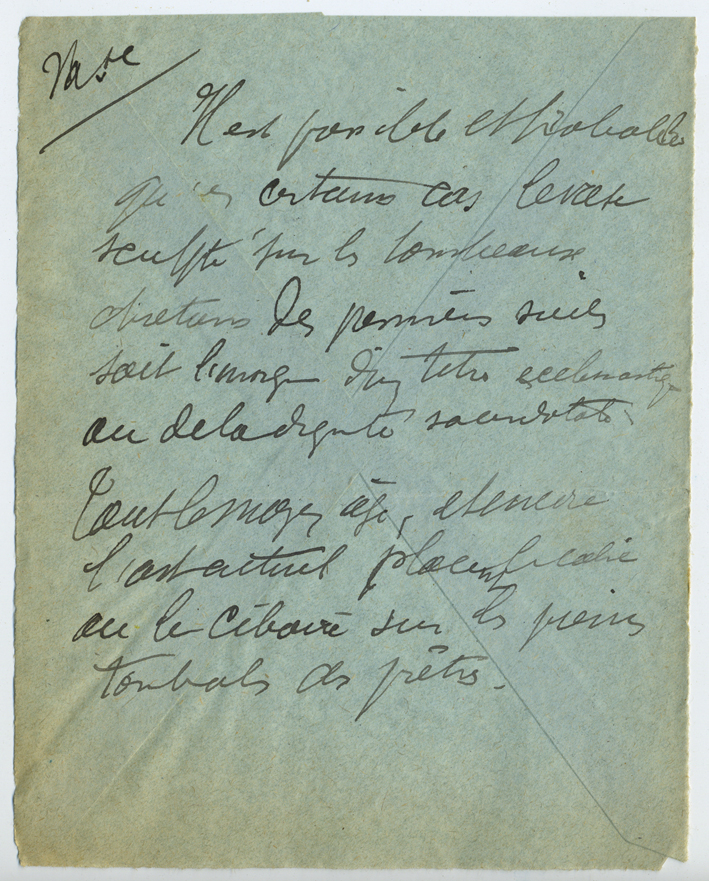 Vase
Il est possible et probable
qu'en certains cas le vase
sculpté sur les tombeaux
chretiens des premiers siècles
soit l'image d'un titre ecclesiastique
ou de la dignité sacerdotale
Tout le moyen âge, et encore
l'art actuel placent le calice
ou le ciboire sur les pierres
tombales des prêtres.